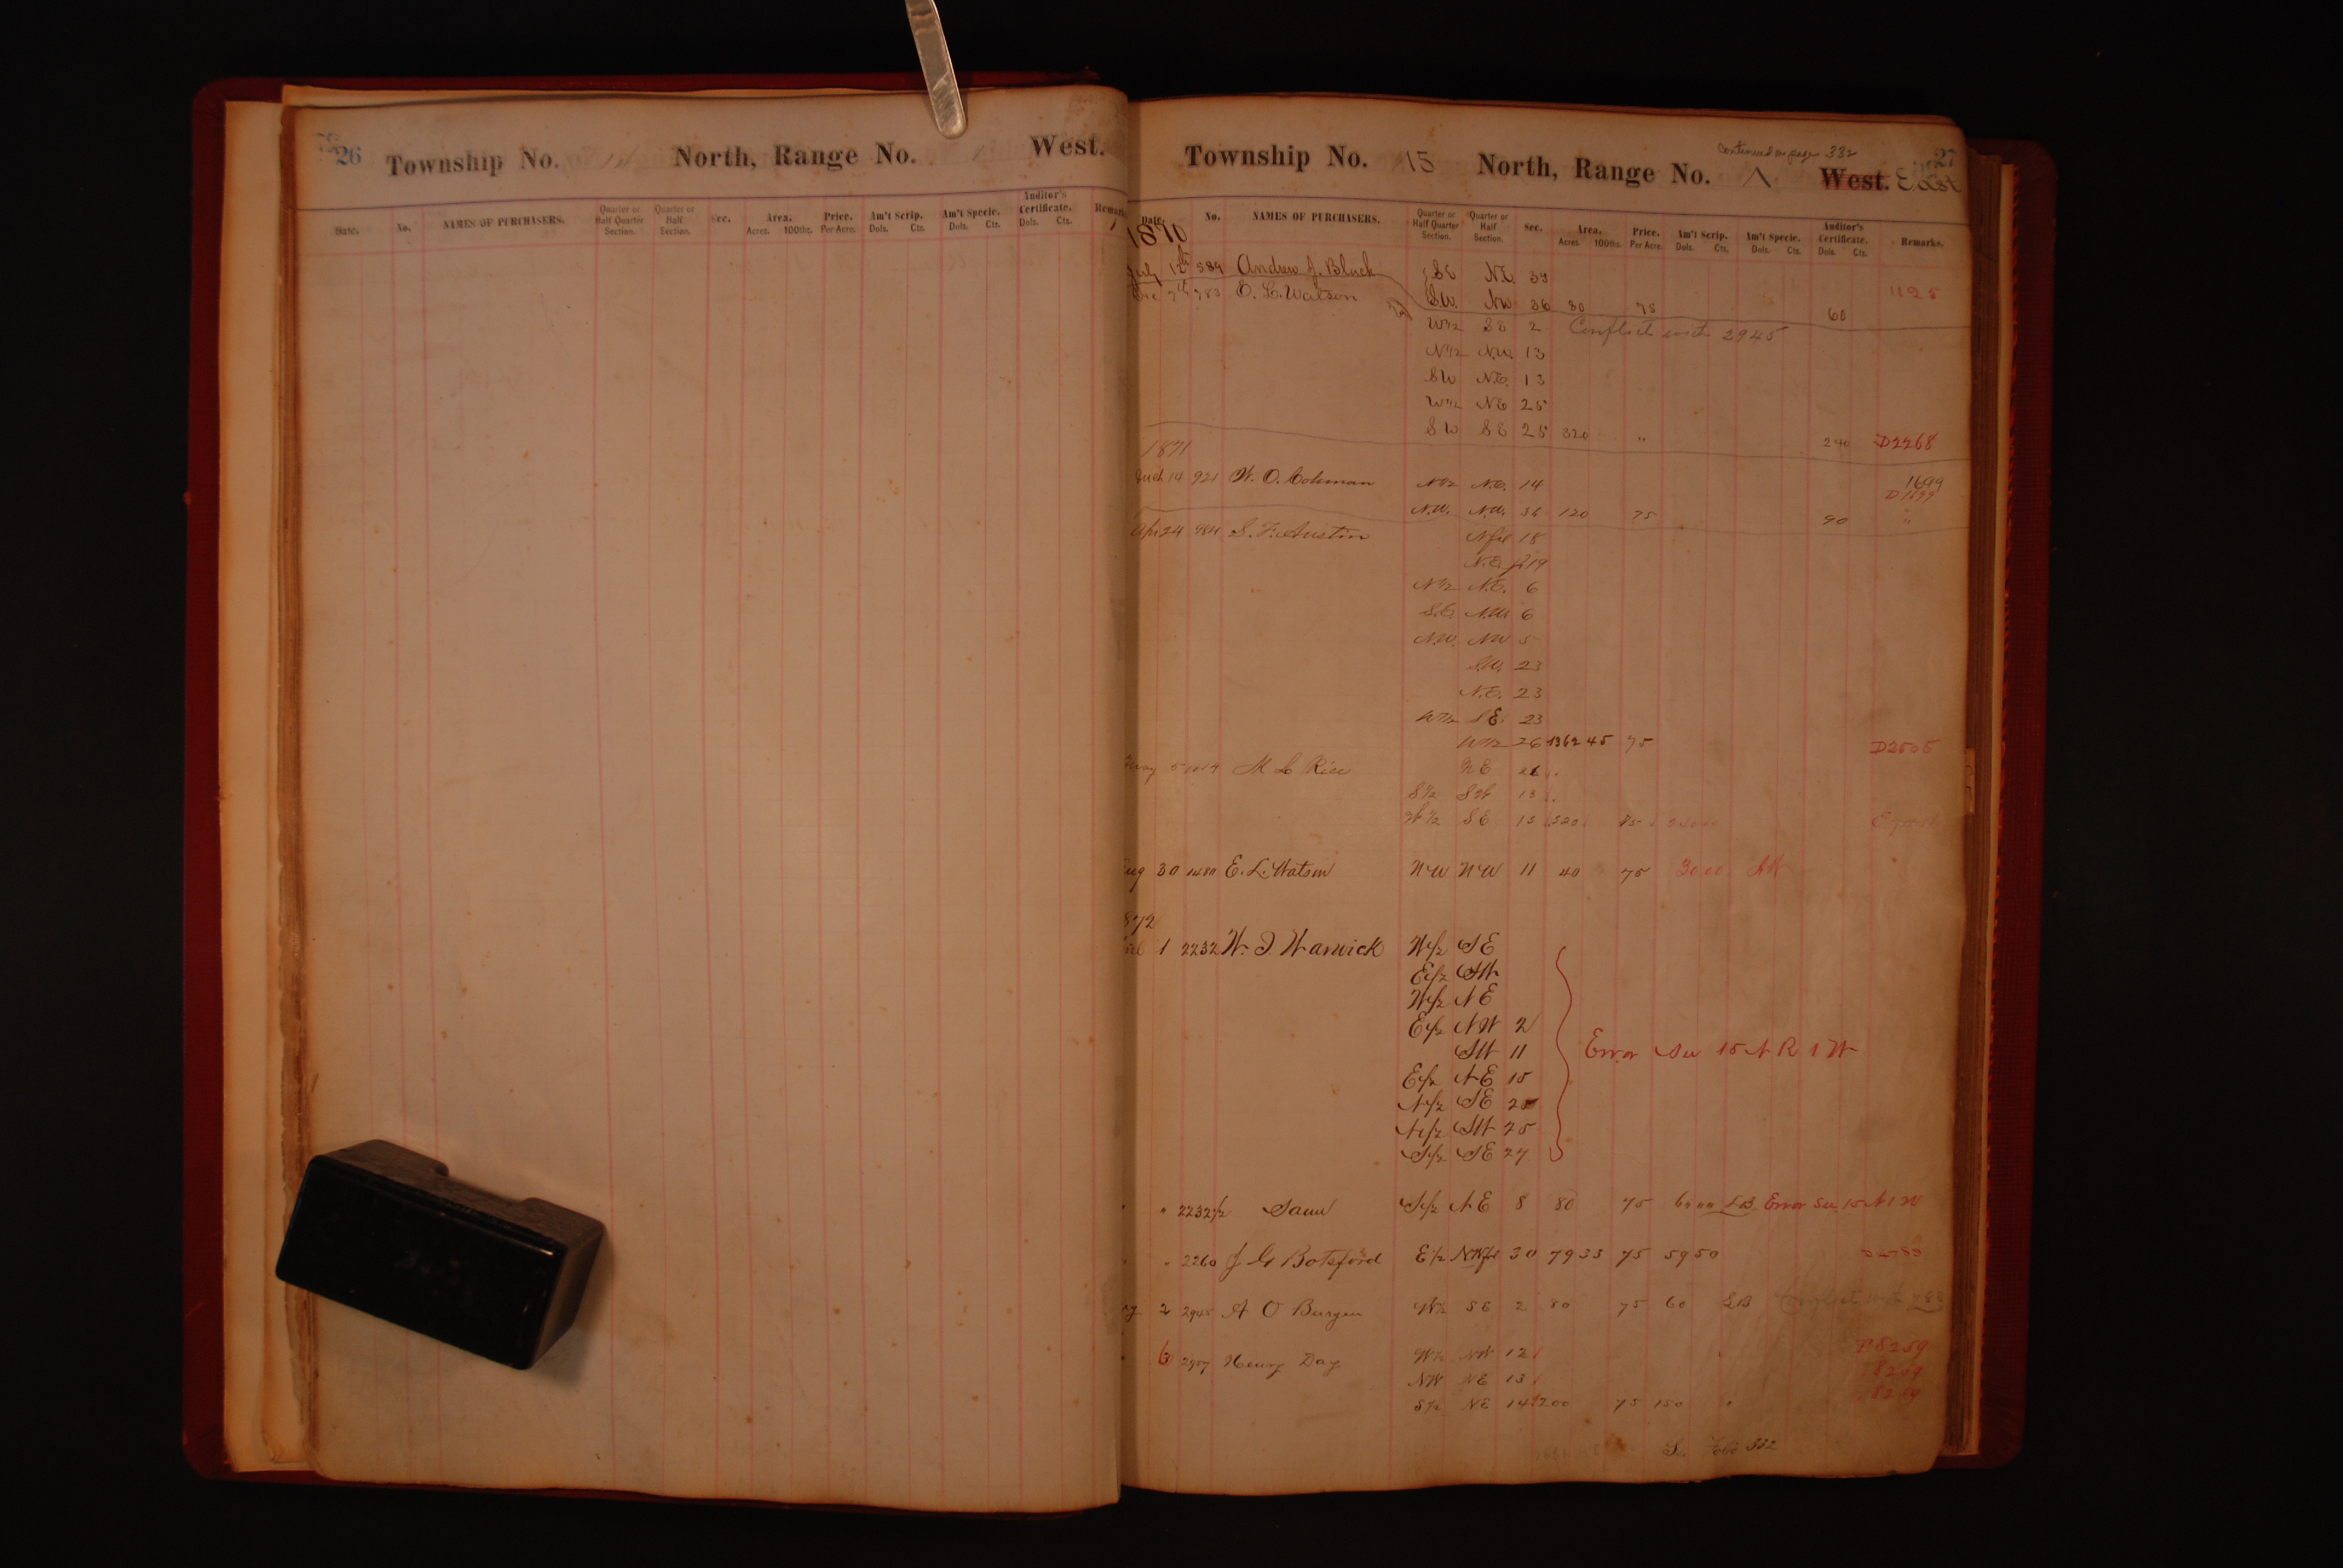 26 Township No. 14 North, Range No. 1 West.
Date. No. NAMES OF PURCHASERS. Quarter or Half Quarter Section. Quarter or Half Section. Sec. Area. Acres. 100ths. Price. Per Acre. Am't Scrip. Dols. Cts. Am't Specie. Dols. Cts. Auditor's Certificate. Dols. Cts. Remarks
Continued on page 332
27
Township No. 15 North, Range No. 1 West. East
Date. No. NAMES OF PURCHASERS. Quarter or Half Quarter Section. Quarter or Half Section. Sec. Area. Acres. 100ths. Price. Per Acre. Am't Scrip. Dols. Cts. Am't Specie. Dols. Cts. Auditor's Certificate. Dols. Cts. Remarks.
1870
July 12th 589 Andrew J. Black SE NE
SW. NW 36 80 75 60 1125
Dec 7th 783 E. L. Watson
W1/2 SE 2 Conflicts with 2945
N1/2 N.W. 13
SW N.E. 13
W1/2 NE 25
SW SE 25 320 " 240 D2268
1871
Mch 14 921 W. O. Colman N1/2 N.E. 14 1699
D1699
N.W. N.W. 36 120 75 90 "
Apr 24 984 S. F. Austin Nfrl 18
N.E. fr 19
N1/2 N.E. 6
S.E. N.W. 6
N.W. NW 5
S.W. 23
N.E. 23
W1/2 SE. 23
W1/2 26 1362 45 75 D2505
May 5 M L Rice NE
S1/2 SW 13
W1/2 SE 13 320
Aug 30 1480 E. L. Watson NW NW 11 40 75 30 00
1872
1 2232 W. J. Warwick W1/2 SE
E1/2 SW
W1/2 NE
E1/2 NW 2
SW 11 Error See 15 N R 1 W
E1/2 NE 15
N1/2 SE 25
N1/2 SW 25
S1/2 SE 27
" " 2232 1/2 Same S1/2 NE 8 80 75 60 00 LB Error See 15 N 1 W
" " 2260 J G Botsford E1/2 NWfrl 30 79 33 75 59 50 D4783
2 2945 A O Burgen W1/2 SE 2 80 75 60 LB Conflict with 783
" 6 2957 Henry Day W1/2 NW 12 D8259
NW NE 13 8259
S1/2 NE 14 200 75 150 " 8259
See Folio 332